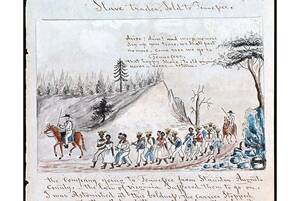 Slave trader, Sold to Tennessee,
Arise! Arise! and weep no more
dry up your tears, we shall part
no more. Come rose we go to
Tennessee,
that happy shore, to old virginia
never - never - return.
the Company going to Tennessee from Staunton, Augusta
County, - the law of Virginia Suffered them to go on.
I was Astonished at this boldness, the carrier Stopped